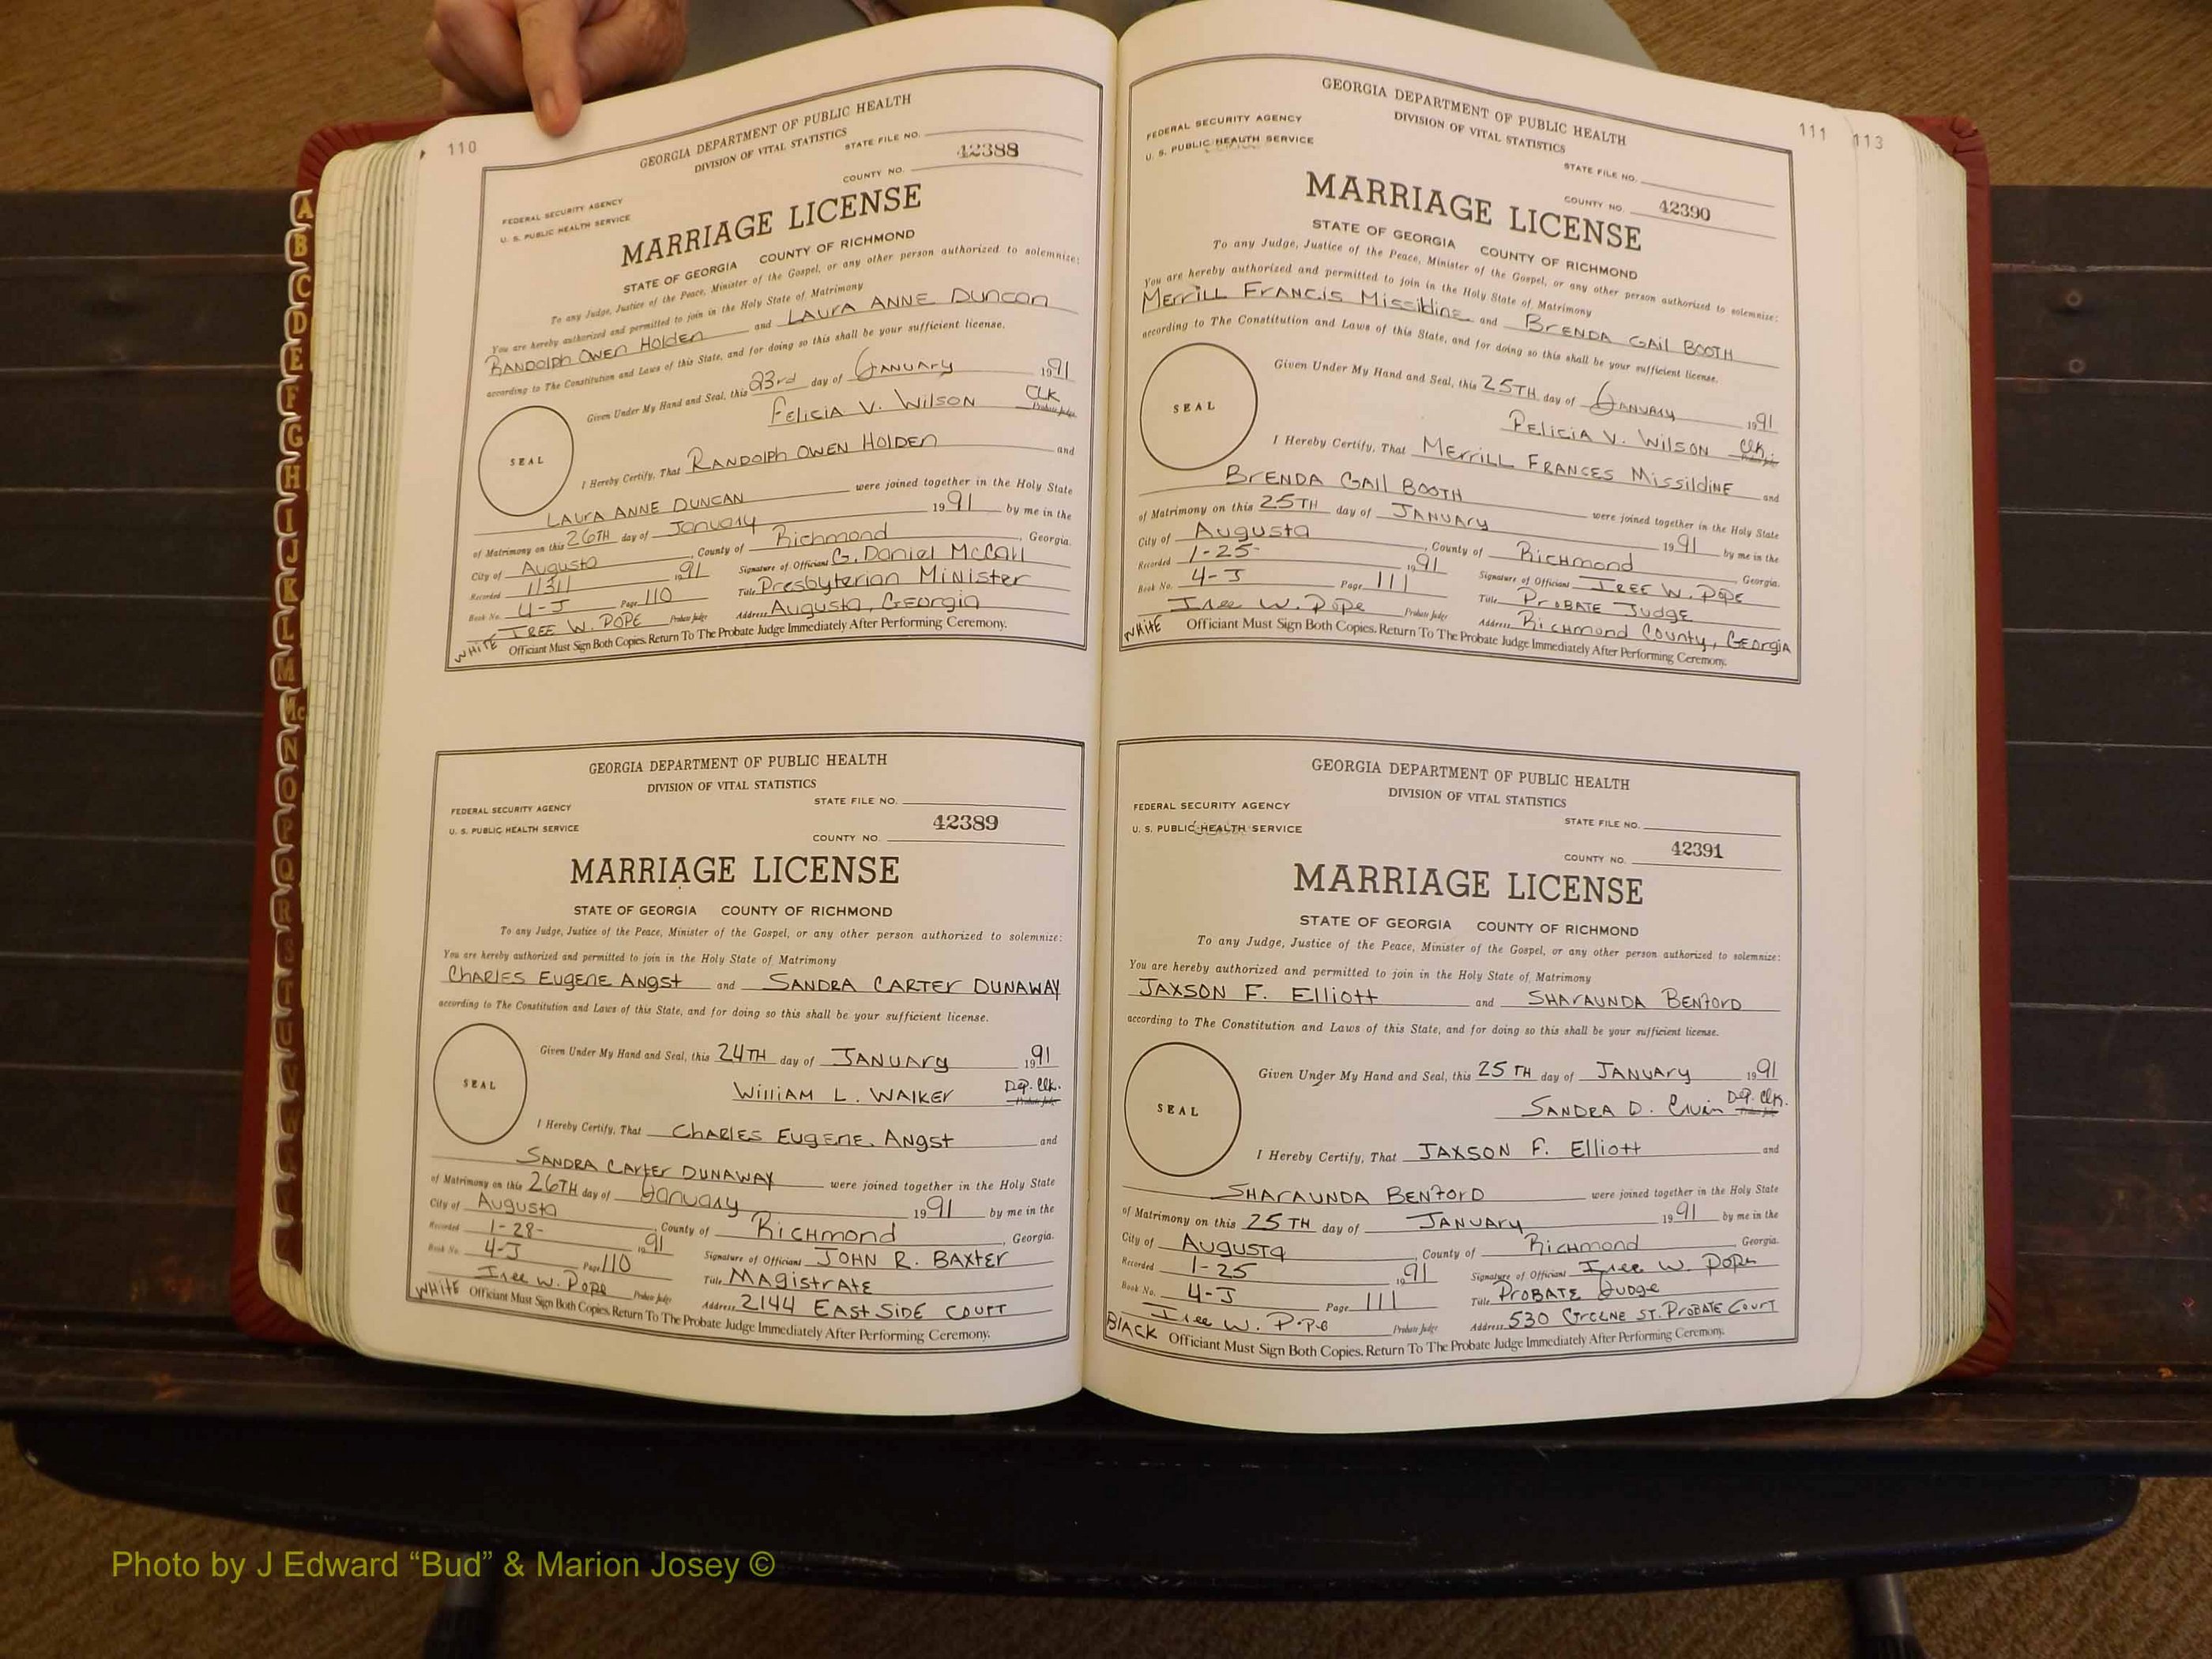 110
GEORGIA DEPARTMENT OF PUBLIC HEALTH
DIVISION OF VITAL STATISTICS
STATE FILE NO.
42388
COUNTY NO.
FEDERAL SECURITY AGENCY
U. S. PUBLIC HEALTH SERVICE
MARRIAGE LICENSE
STATE OF GEORGIA COUNTY OF RICHMOND
To any Judge, Justice of the Peace, Minister of the Gospel, or any other person authorized to solemnize:
You are hereby authorized and permitted to join in the Holy State of Matrimony
RANDOlph OWEN HOlden and LAURA ANNE DUNCAN
according to The Constitution and Laws of this State, and for doing so this shall be your sufficient license.
Given Under My Hand and Seal, this 23rd day of JANUARY 1991
SEAL
FEliCiA V. WilsON Clk Probate Judge
I Hereby Certify, That RANDOlph OWEN HOlDEN and
LAUrA ANNE DUNCAN were joined together in the Holy State
of Matrimony on this 26TH day of January 1991 by me in the
City of Augusta, County of Richmond, Georgia.
Recorded 1/31/ 1991 Signature of Officiant G. Daniel McCall
Book No. 4-J Page 110 Title Presbyterian Minister
IREE W. POPE Probate Judge Address Augusta, GEorgia
WHITE Officiant Must Sign Both Copies. Return To The Probate Judge Immediately After Performing Ceremony.
GEORGIA DEPARTMENT OF PUBLIC HEALTH
DIVISION OF VITAL STATISTICS
FEDERAL SECURITY AGENCY STATE FILE NO.
U. S. PUBLIC HEALTH SERVICE
42389
COUNTY NO.
MARRIAGE LICENSE
STATE OF GEORGIA COUNTY OF RICHMOND
To any Judge, Justice of the Peace, Minister of the Gospel, or any other person authorized to solemnize:
You are hereby authorized and permitted to join in the Holy State of Matrimony
CHARLES EugENE ANgst and SANDRA CARTER DUNAWAY
according to The Constitution and Laws of this State, and for doing so this shall be your sufficient license.
Given Under My Hand and Seal, this 24TH day of JANUARY 1991
SEAL
WilliAM L. WAlKER Dep. Clk. Probate Judge
I Hereby Certify, That CHARLES EugENE ANgst and
SANDRA CARTER DUNAWAY were joined together in the Holy State
of Matrimony on this 26TH day of January 1991 by me in the
City of Augusta, County of RicHmond, Georgia.
Recorded 1-28- 1991 Signature of Officiant JOHN R. BAXTER
Book No. 4-J Page 110 Title MAgistrATE
Iree W. Pope Probate Judge Address 2144 EAST SIDE COURT
WHITE Officiant Must Sign Both Copies. Return To The Probate Judge Immediately After Performing Ceremony.
111 113
GEORGIA DEPARTMENT OF PUBLIC HEALTH
DIVISION OF VITAL STATISTICS
FEDERAL SECURITY AGENCY
U. S. PUBLIC HEALTH SERVICE
STATE FILE NO.
COUNTY NO. 42390
MARRIAGE LICENSE
STATE OF GEORGIA COUNTY OF RICHMOND
To any Judge, Justice of the Peace, Minister of the Gospel, or any other person authorized to solemnize:
You are hereby authorized and permitted to join in the Holy State of Matrimony
MErrill FRANCIS Missildine and BrENDA GAil BOOTH
according to The Constitution and Laws of this State, and for doing so this shall be your sufficient license.
Given Under My Hand and Seal, this 25TH day of JANUARY 1991
SEAL
FEliciA V. WilSON Clk. Probate Judge
I Hereby Certify, That MErrill FRANCES MissildiNE and
BrENDA GAIL BOOTH were joined together in the Holy State
of Matrimony on this 25TH day of JANUARY 1991 by me in the
City of Augusta, County of RicHmond Georgia.
Recorded 1-25- 1991 Signature of Officiant IREE W. POPE
Book No. 4-J Page 111 Title PrOBATE Judge
Iree W. Pope Probate Judge Address Richmond County, GEorgiA
WHITE Officiant Must Sign Both Copies. Return To The Probate Judge Immediately After Performing Ceremony.
GEORGIA DEPARTMENT OF PUBLIC HEALTH
DIVISION OF VITAL STATISTICS
FEDERAL SECURITY AGENCY
U. S. PUBLIC HEALTH SERVICE
STATE FILE NO.
42391
COUNTY NO.
MARRIAGE LICENSE
STATE OF GEORGIA COUNTY OF RICHMOND
To any Judge, Justice of the Peace, Minister of the Gospel, or any other person authorized to solemnize:
You are hereby authorized and permitted to join in the Holy State of Matrimony
JAXSON F. Elliott and SHArAUNDA BENfOrD
according to The Constitution and Laws of this State, and for doing so this shall be your sufficient license.
Given Under My Hand and Seal, this 25TH day of JANUARY 1991
SEAL
SANDRA D. Dep. Clk. Probate Judge
I Hereby Certify, That JAXSON F. Elliott and
SHArAUNDA BENfOrD were joined together in the Holy State
of Matrimony on this 25TH day of JANUARY 1991 by me in the
City of Augusta, County of RicHmond Georgia.
Recorded 1-25 1991 Signature of Officiant Iree W. Pope
Book No. 4-J Page 111 Title PrOBATE Judge
Iree W. Pope Probate Judge Address 530 GreENE ST. PrOBATE COurT
BlACK Officiant Must Sign Both Copies. Return To The Probate Judge Immediately After Performing Ceremony.
A
B
C
D
E
F
G
H
I
J
K
L
M
Mc
N
O
P
Q
R
S
T
U
Photo by J Edward “Bud” & Marion Josey ©